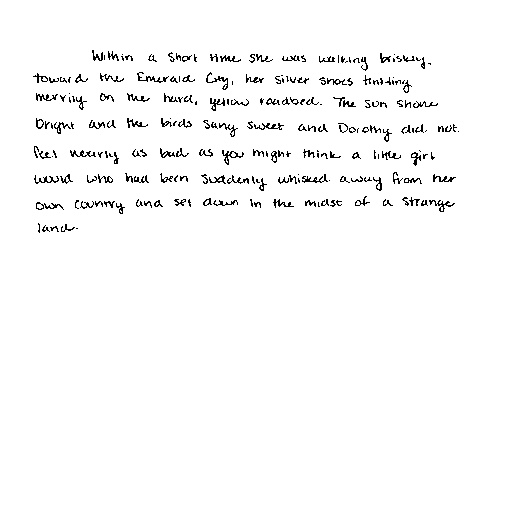 Within a short time she was walking briskly
toward the Emerald City, her silver shoes tinkling
merrily on the hard, yellow roadbed. The sun shone
bright and the birds sang sweet and Dorothy did not
feel nearly as bad as you might think a little girl
would who had been suddenly whisked away from her
own country and set down in the midst of a strange
land.